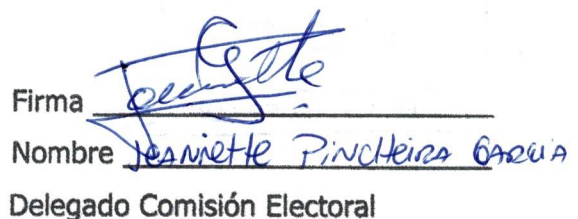 Firma Jeannette
Nombre JEANNETTE PINCHEIRA GARCIA
Delegado Comisión Electoral